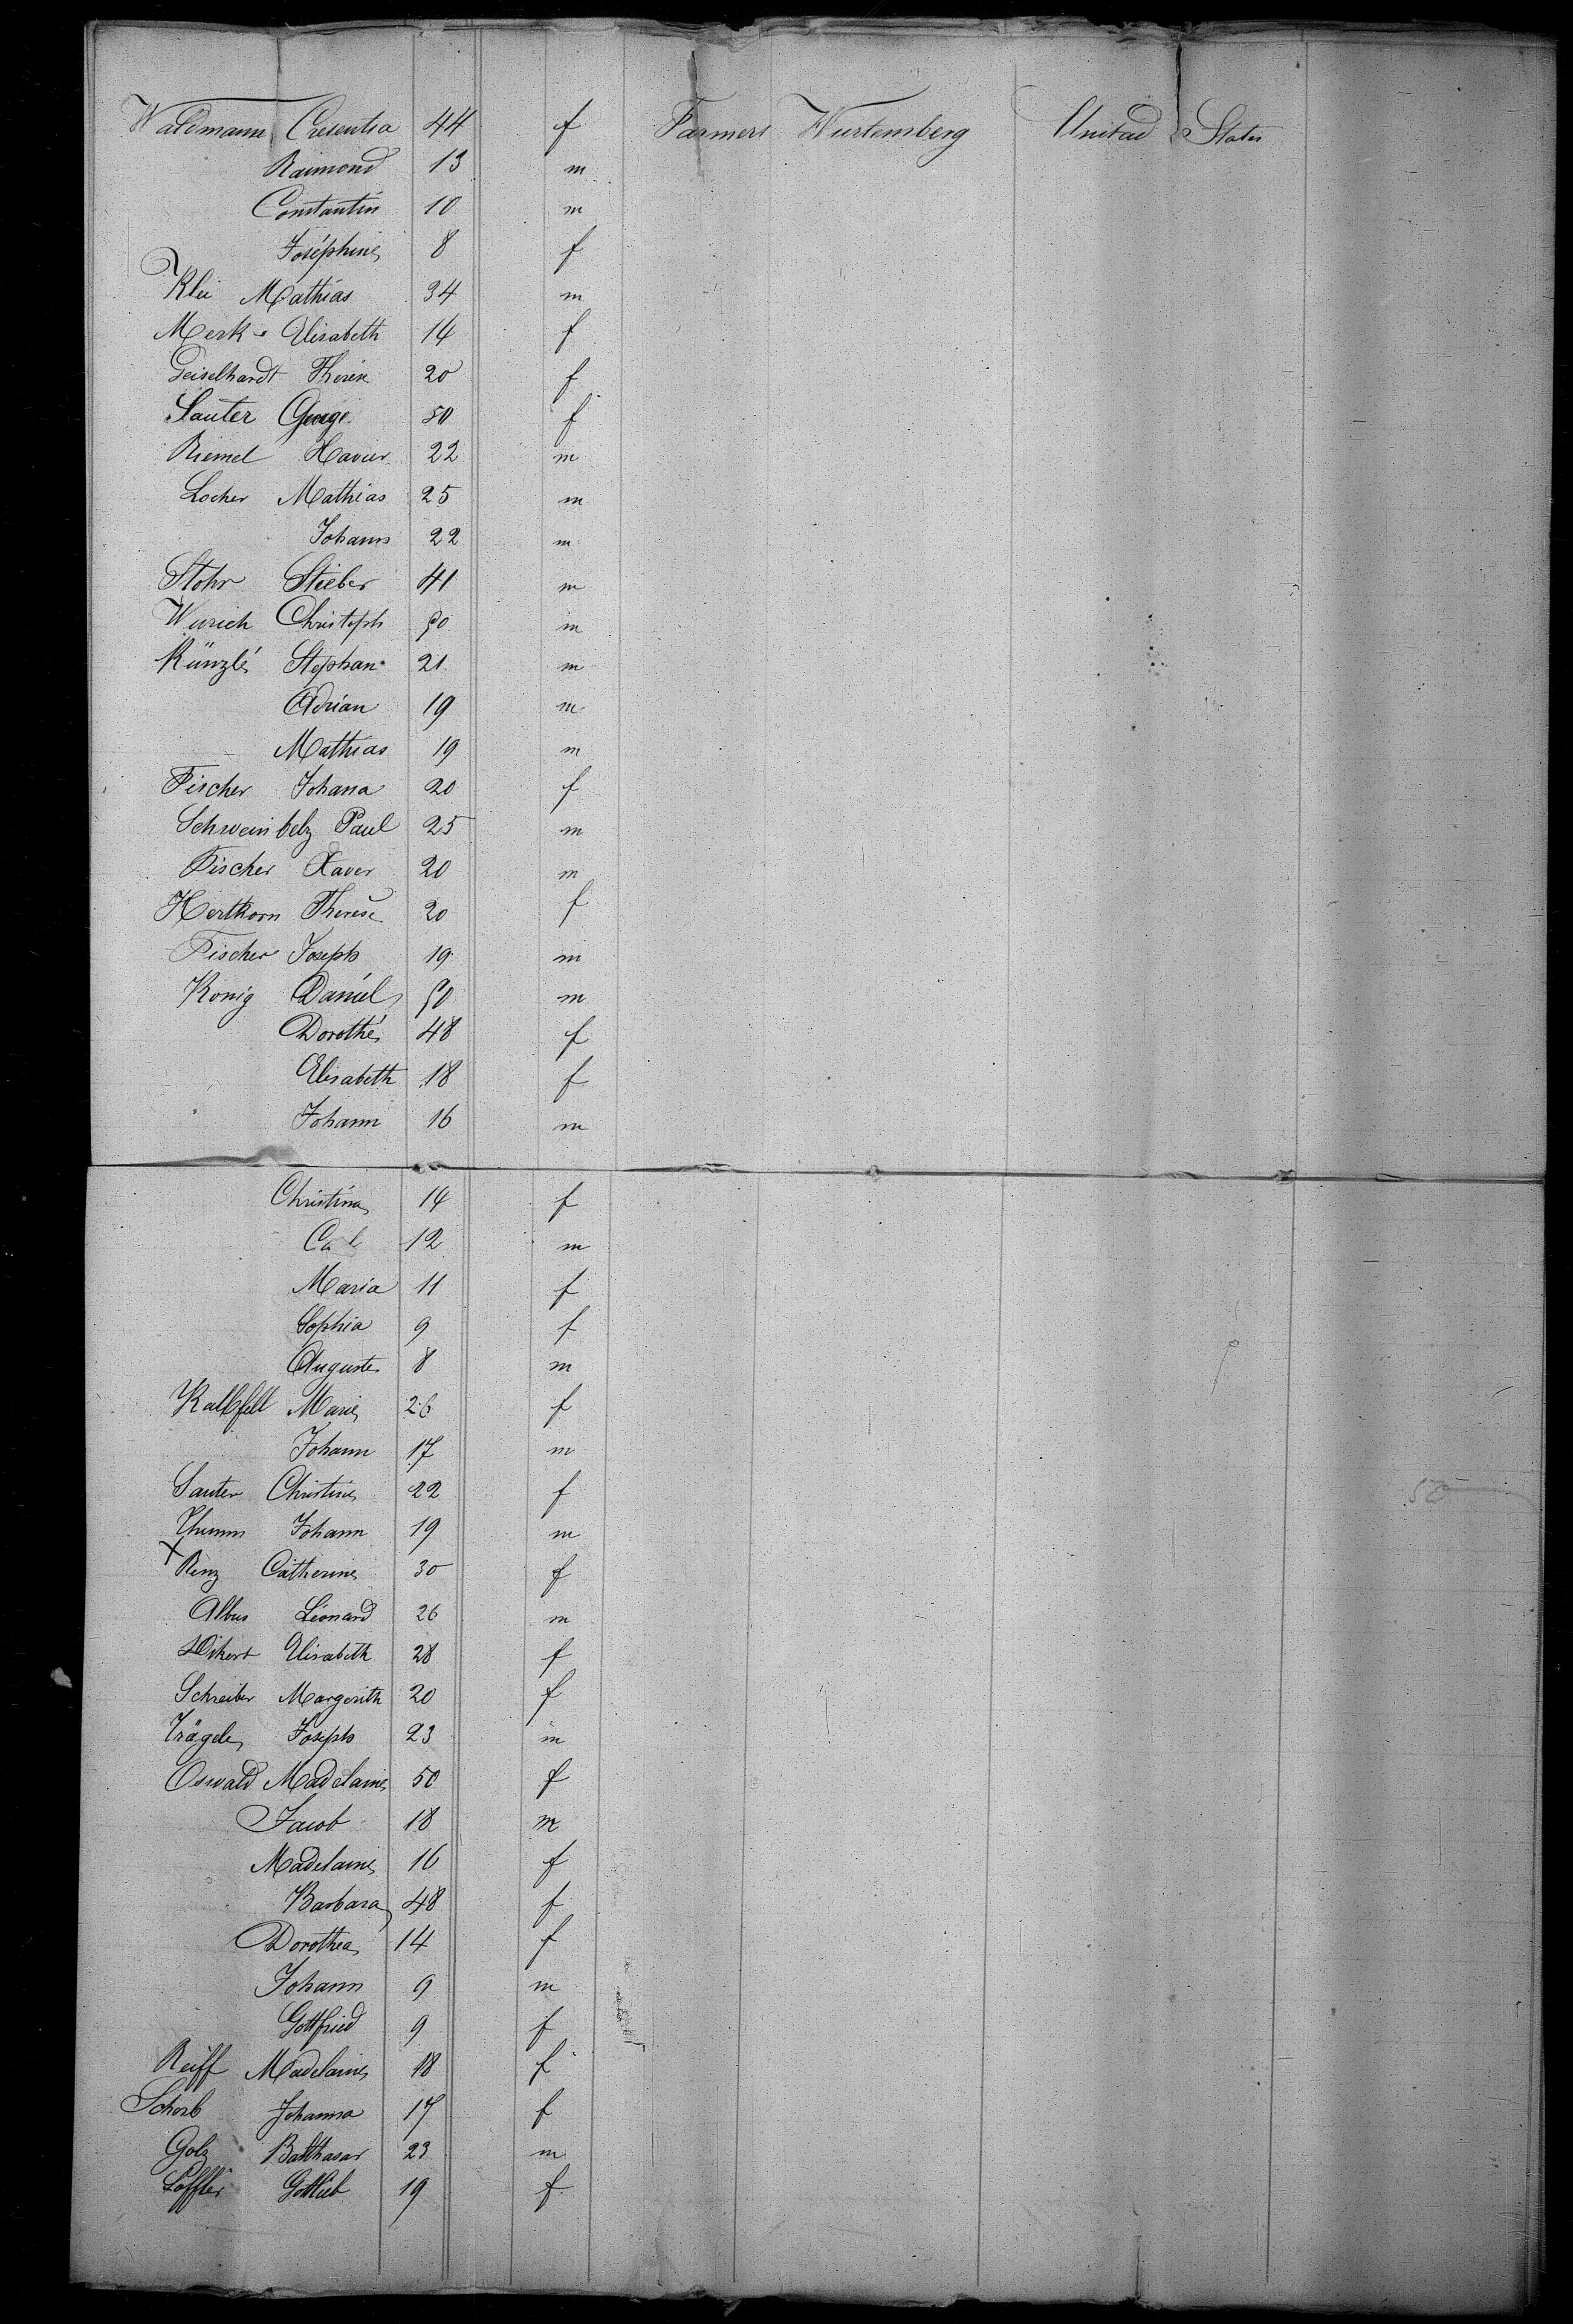 Waldmann Cresentia 44 f Farmers Wurtemberg Unitad States
Raimond 13 m
Constantin 10 m
Joséphine 8 f
Klei Mathias 34 m
Merk Elisabeth 14 f
Geiselhardt Therese 20 f
Sauter George 50 f
Riemel Xavier 22 m
Locher Mathias 25 m
Johann 22 m
Stohr Stieber 41 m
Wurich Christoph 50 m
Künzlé Stephan 21 m
Adrian 19 m
Mathias 19 m
Fischer Johana 20 f
Schweinbelz Paul 25 m
Fischer Xaver 20 m
Hertkorn Therese 20 f
Fischer Joseph 19 m
Konig Daniel 50 m
Dorothé 48 f
Elisabeth 18 f
Johann 16 m
Christina 14 f
Carl 12 m
Maria 11 f
Sophia 9 f
Auguste 8 m
Kalbfell Marie 26 f
Johann 17 m
Sauter Christine 22 f
50
Thumm Johann 19 m
X
Renz Catherine 30 f
Albus Léonard 26 m
Elisabeth 28 f
Schreiber Margerith 20 f
Trägele Joseph 23 m
Oswald Madelaine 50 f
Jacob 18 m
Madelaine 16 f
Barbara 48 f
Dorothea 14 f
Johann 9 m
Gottfried 9 f
Reiff Madelaine 18 f
Schorb Johanna 17 f
Golz Balthasar 23 m
Löffler Gottlieb 19 f